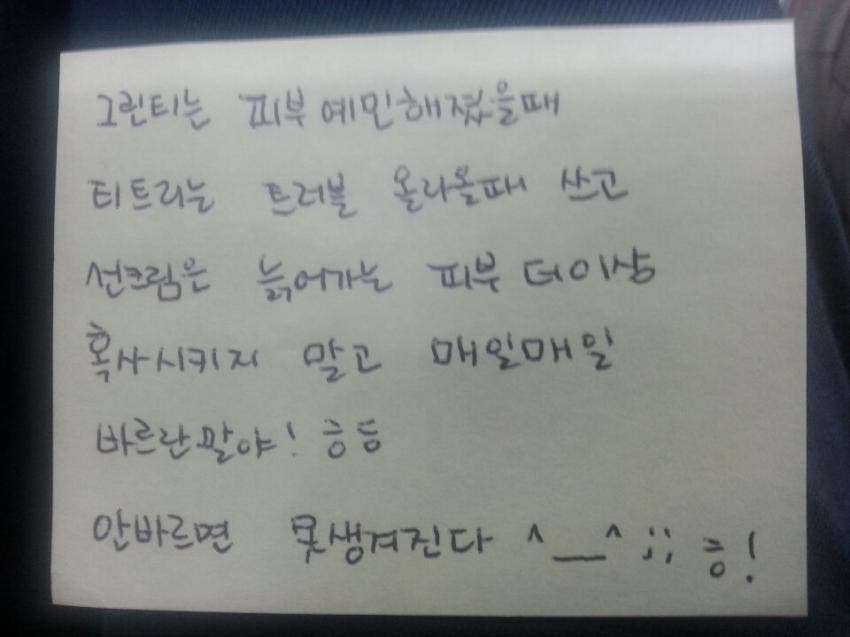 그린티는 피부 예민해졌을때
티트리는 트러블 올라올때 쓰고
선크림은 늙어가는 피부 더이상
혹사시키지 말고 매일매일
바르란말야! 흥흥
안바르면 못생겨진다 ^__^ ;; 흥!